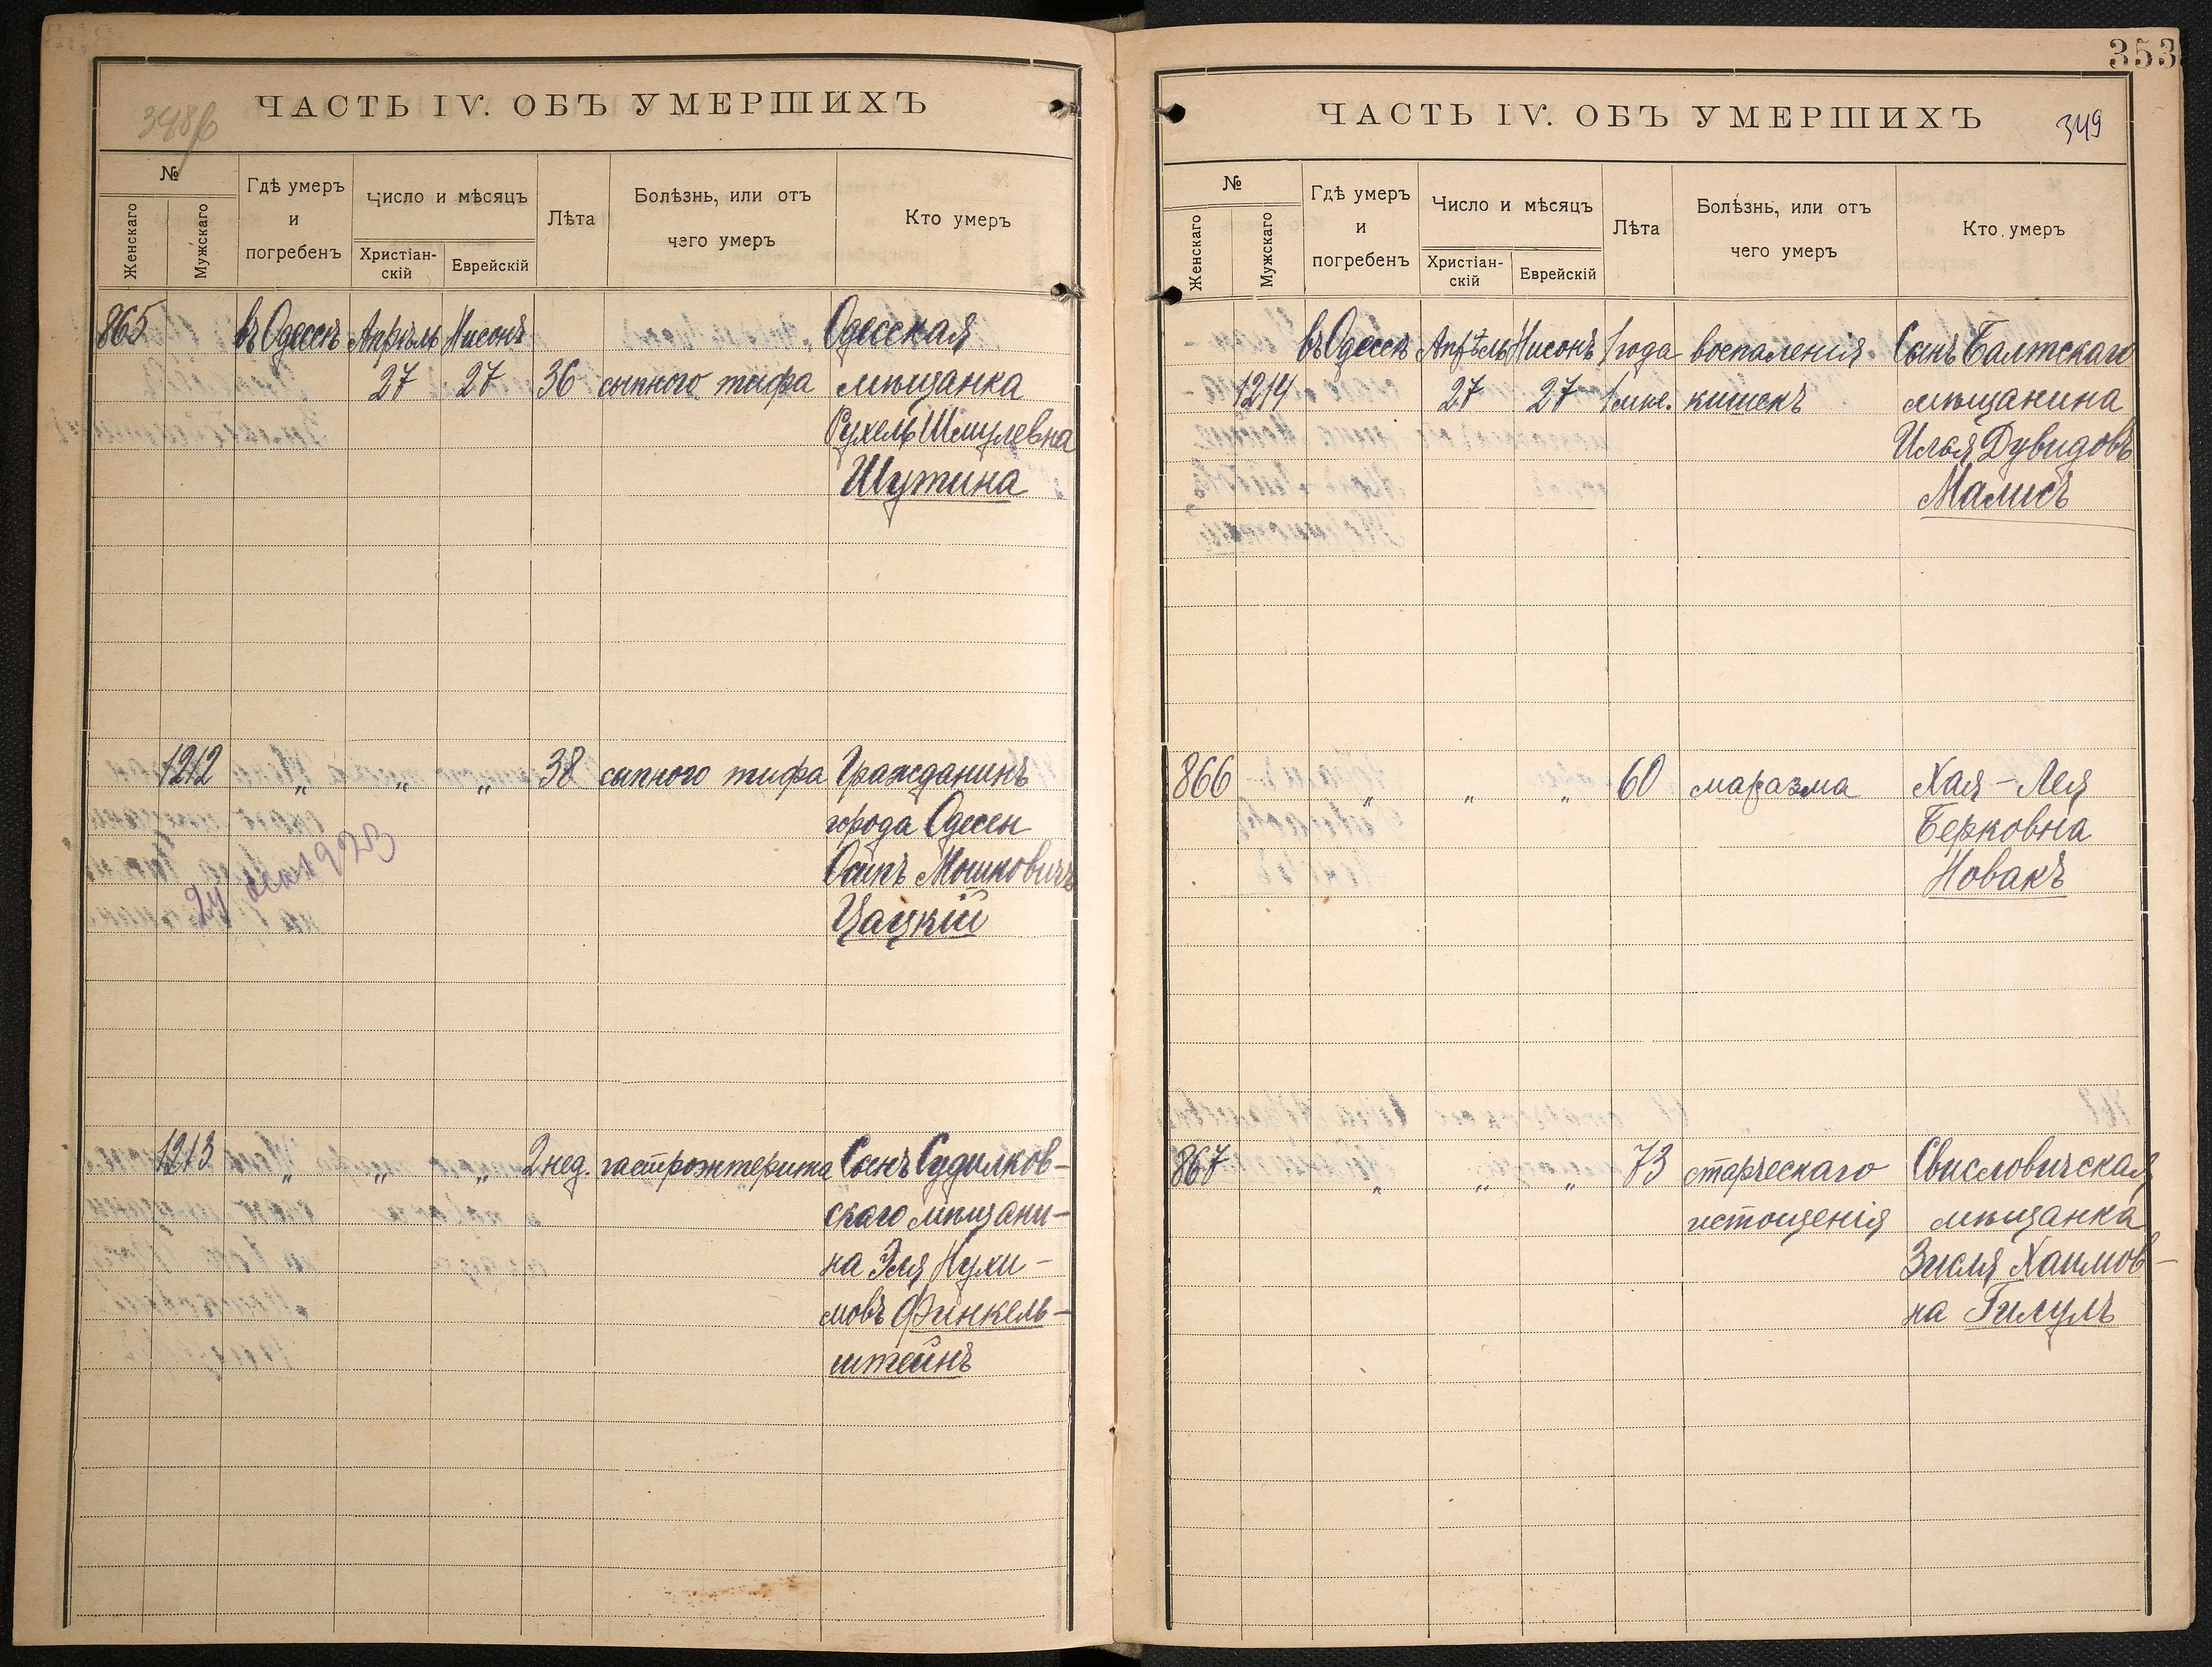 348б
ЧАСТЬ IV. ОБЪ УМЕРШИХЪ
№
Женскаго
Мужскаго
Гдѣ умеръ
и
погребенъ
Число и мѣсяцъ
Христіан-
скій
Еврейскій
Лѣта
Болѣзнь, или отъ
чего умеръ
Кто умеръ
865 въ Одессѣ Апрѣль Нисонъ Одесская
27 27 36 сыпного тифа мѣщанка
Рухель Шмулевна
Шутина
1212 „ „ „ 38 сыпного тифа Гражданинъ
города Одессы
Осипъ Мошковичъ
Цацкій
1923
1213 „ „ „ 2 нед. гастроэнтерита Сынъ Судилков-
скаго мѣщани-
на Эля Нухи-
мовъ Финкель-
штейнъ
353
ЧАСТЬ IV. ОБЪ УМЕРШИХЪ
349
№
Женскаго
Мужскаго
Гдѣ умеръ
и
погребенъ
Число и мѣсяцъ
Христіан-
скій
Еврейскій
Лѣта
Болѣзнь, или отъ
чего умеръ
Кто умеръ
въ Одессѣ Апрѣль Нисонъ 1 года воспаленія Сынъ Балтскаго
1214 27 27 1 мѣс. кишекъ мѣщанина
Илья Дувидовъ
Малисъ
866 „ „ „ 60 маразма Хая-Лея
Берковна
Новакъ
867 „ „ „ 73 старческаго Свисловичская
истощенія мѣщанка
Зисля Хаимов-
на Гилулъ